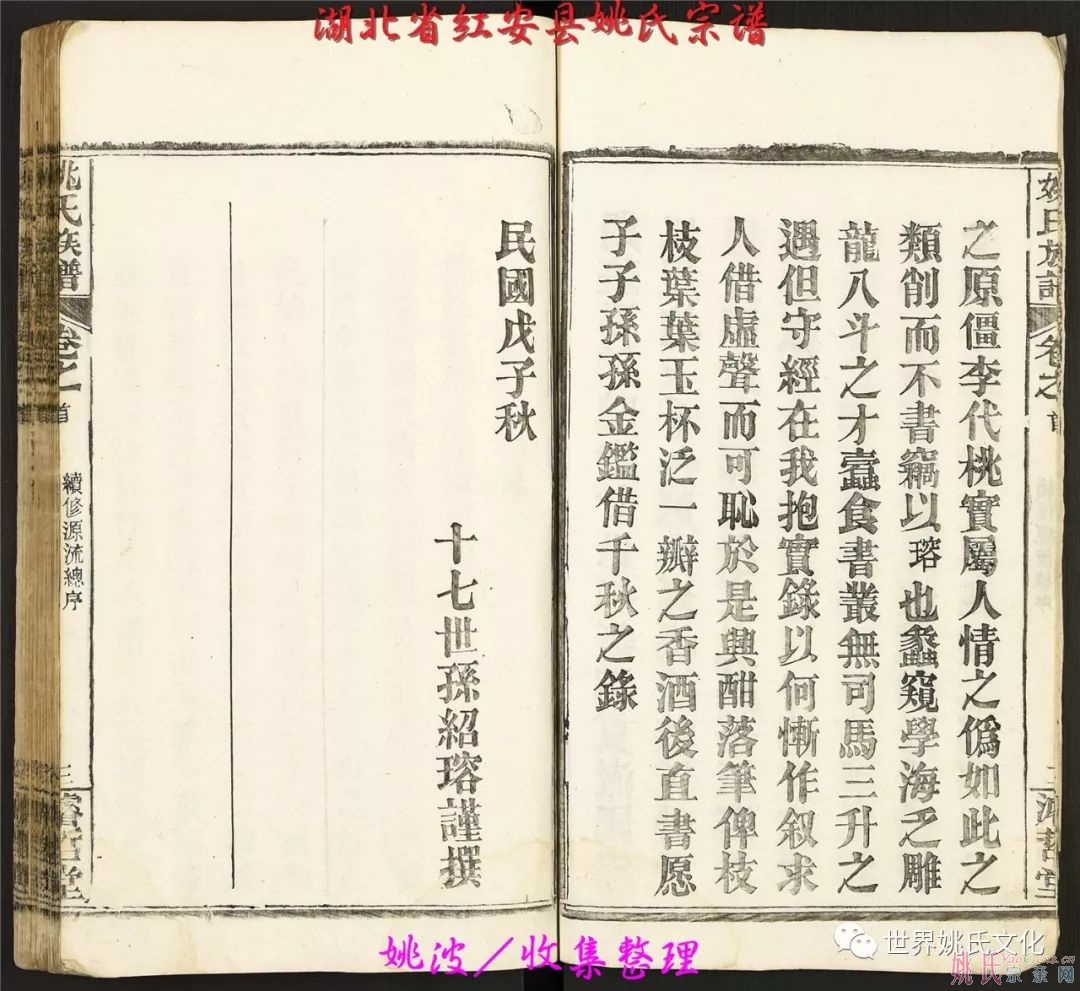 湖北省红安县姚氏宗谱
姚氏族譜
卷之
首
之原僵李代桃實屬人情之僞如此之
類削而不書竊以瑢也蠡窺學海乏雕
龍八斗之才蠹食書叢無司馬三升之
遇但守經在我抱實錄以何慚作叙求
人借虛聲而可恥於是興酣落筆俾枝
枝葉葉玉杯泛一瓣之香酒後直書愿
子子孫孫金鑑借千秋之錄
民國戊子秋
十七世孫紹瑢謹撰
姚氏族譜
卷之
首
續修源流總序
三
堂
姚波／收集整理
世界姚氏文化
姚氏宗亲网